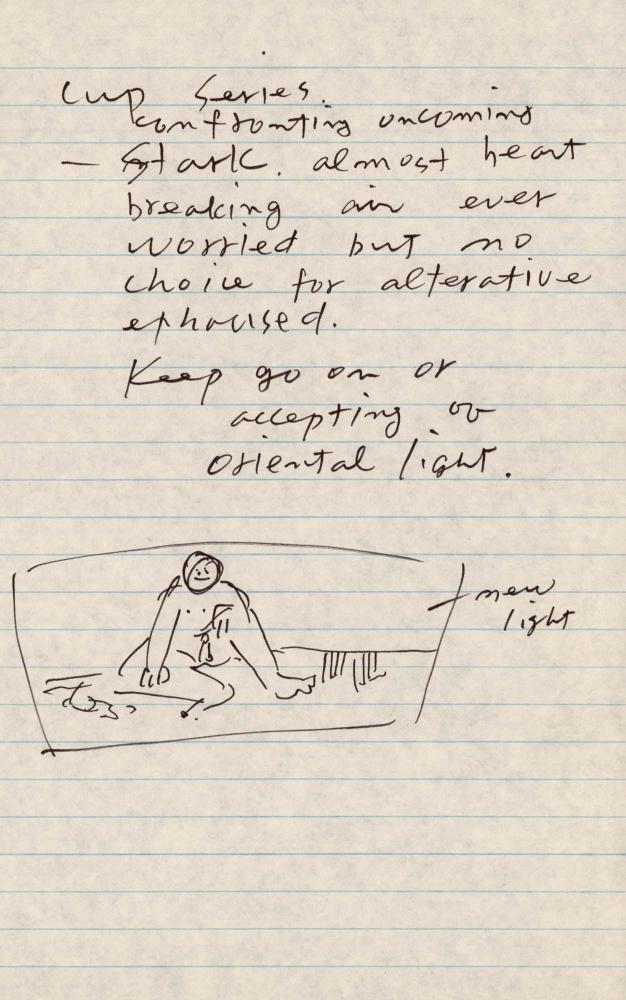 Cup Series.
confronting oncoming
— Stark. almost heart
breaking air ever
worried but no
choice for alterative
exhaused.
Keep go on or
accepting of
oriental light.
new
light